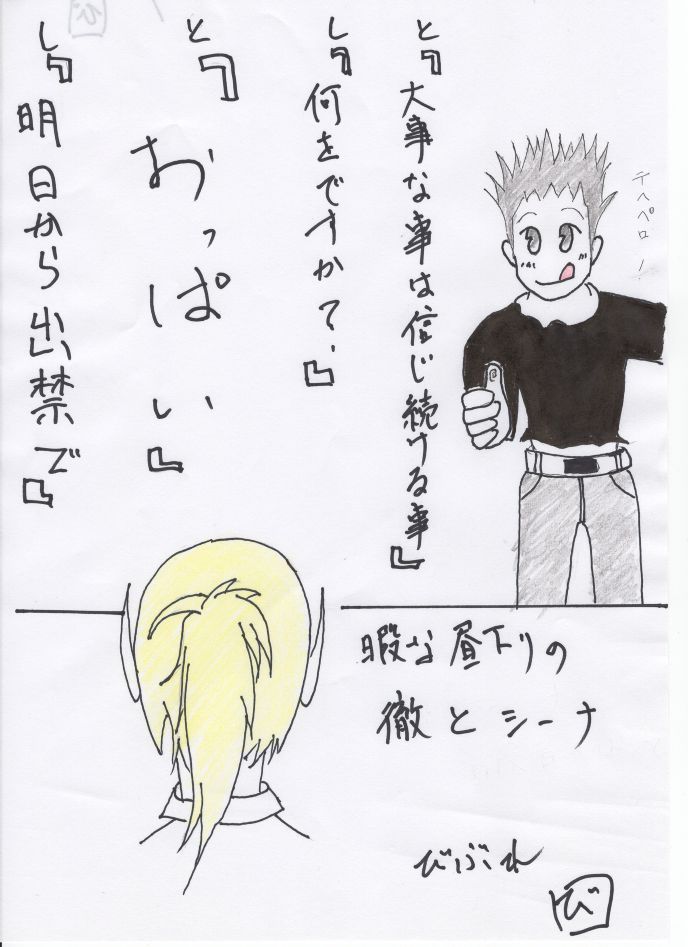 テヘペロ！
と『大事な事は信じ続ける事』
し『何をですか？』
と『おっぱい』
し『明日から出禁で』
暇な昼下りの
徹とシーナ
びぶれ
び
び